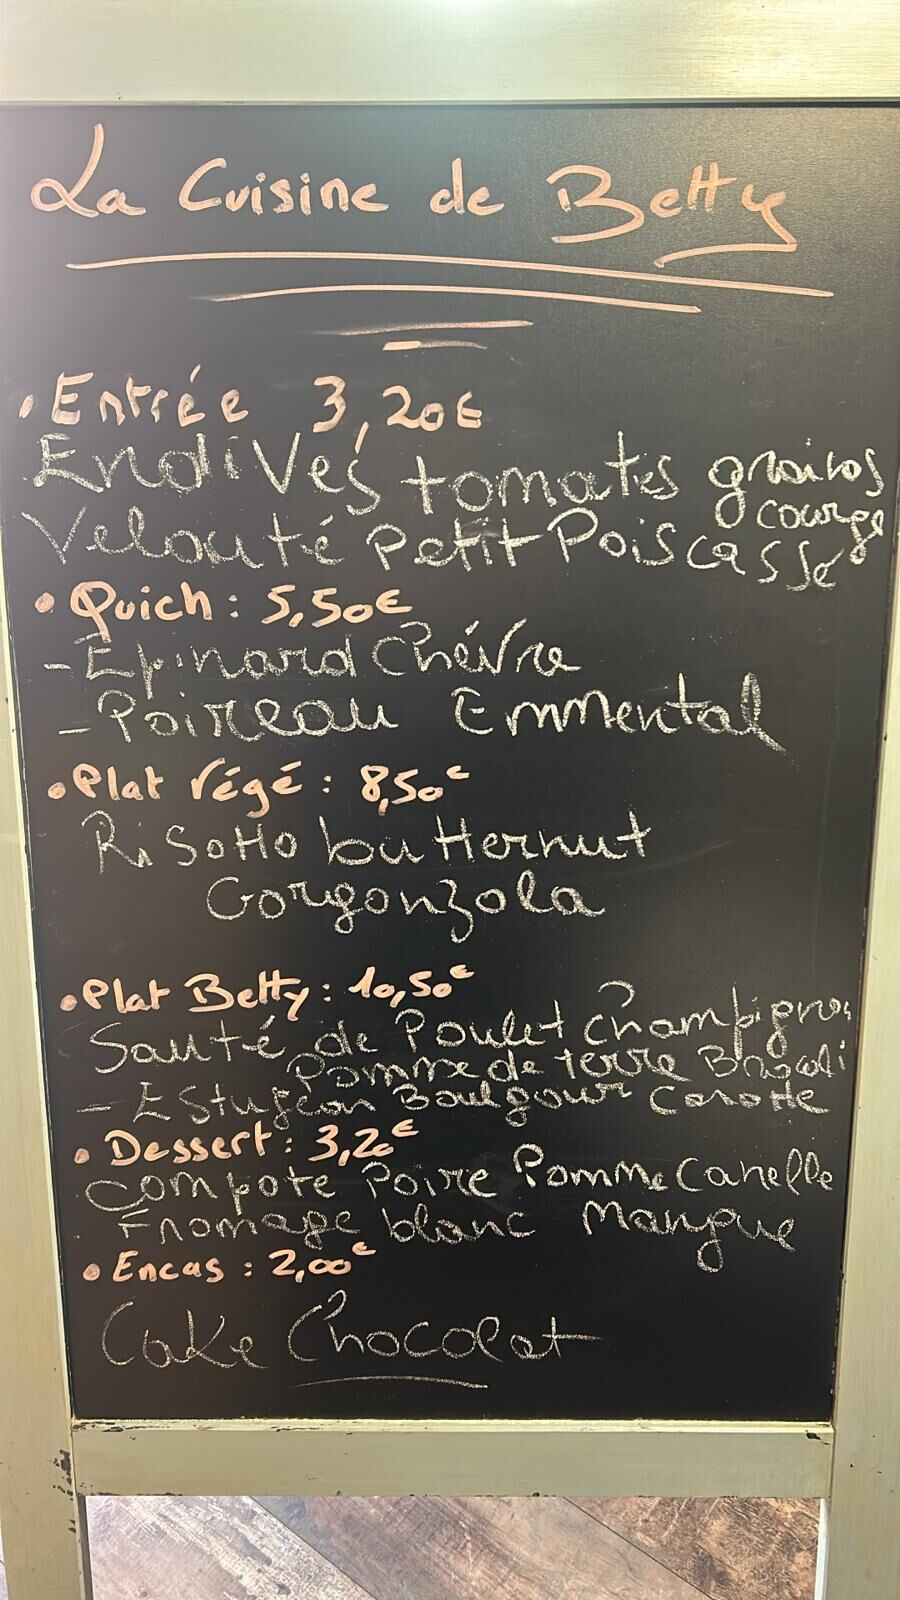 La Cuisine de Betty
• Entrée 3,20€
Endives tomates graines
courge
Velouté Petit Pois cassé
• Quich : 5,50€
- Epinard Chèvre
- Poireau Emmental
• Plat Végé : 8,50€
Risotto butternut
Gorgonzola
• Plat Betty : 10,50€
Sauté de Poulet champignon
Pomme de terre Brocoli
- Esturgeon Boulgour Carotte
• Dessert : 3,20€
Compote Poire Pomme Canelle
Fromage blanc Mangue
• Encas : 2,00€
Cake Chocolat